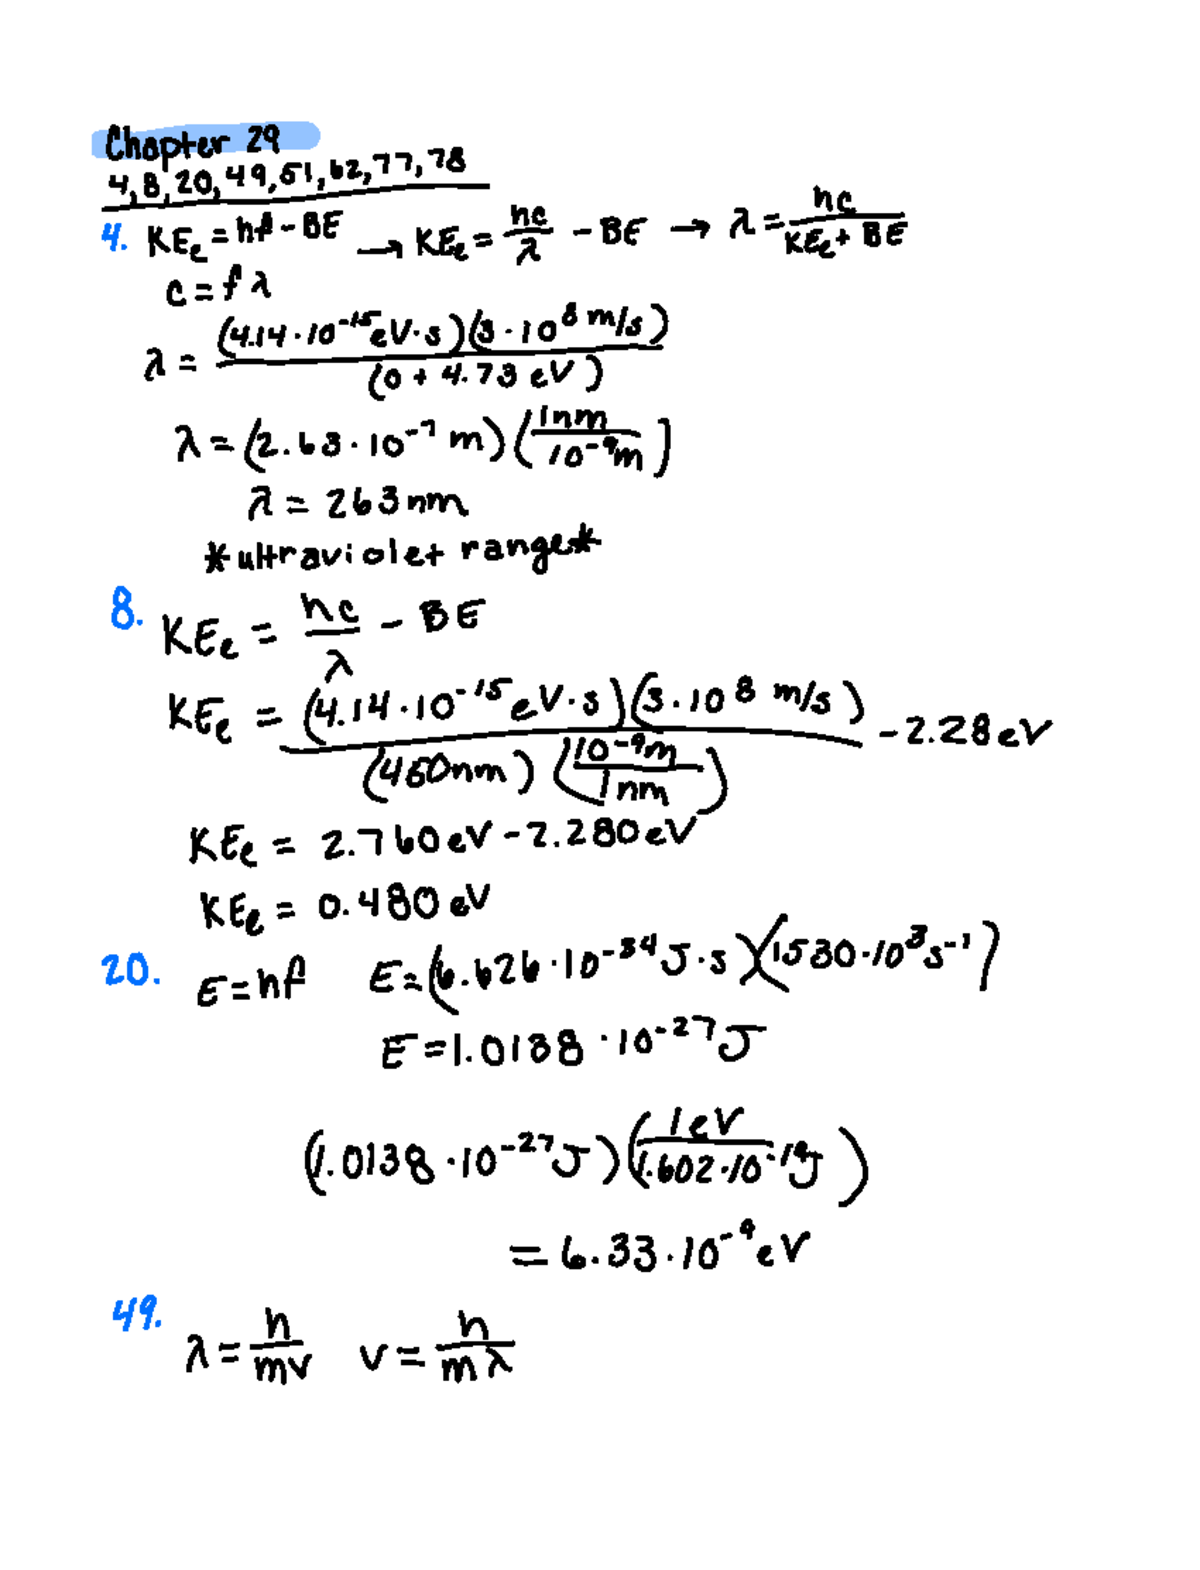 Chapter 29
4, 8, 20, 49, 51, 62, 77, 78
4. KEe = hf - BE → KEe = hc/λ - BE → λ = hc/(KEe + BE)
c = fλ
λ = (4.14·10^-15 eV·s)(3·10^8 m/s)/(0 + 4.73 eV)
λ = (2.63·10^-7 m)(1nm/10^-9m)
λ = 263nm
*ultraviolet range*
8. KEe = hc/λ - BE
KEe = (4.14·10^-15 eV·s)(3·10^8 m/s)/(450nm)(10^-9m/1nm) - 2.28eV
KEe = 2.760eV - 2.280eV
KEe = 0.480 eV
20. E = hf E = (6.626·10^-34 J·s)(1530·10^3 s^-1)
E = 1.0138·10^-27 J
(1.0138·10^-27 J)(1eV/1.602·10^-19 J)
= 6.33·10^-9 eV
49. λ = h/mv v = h/mλ